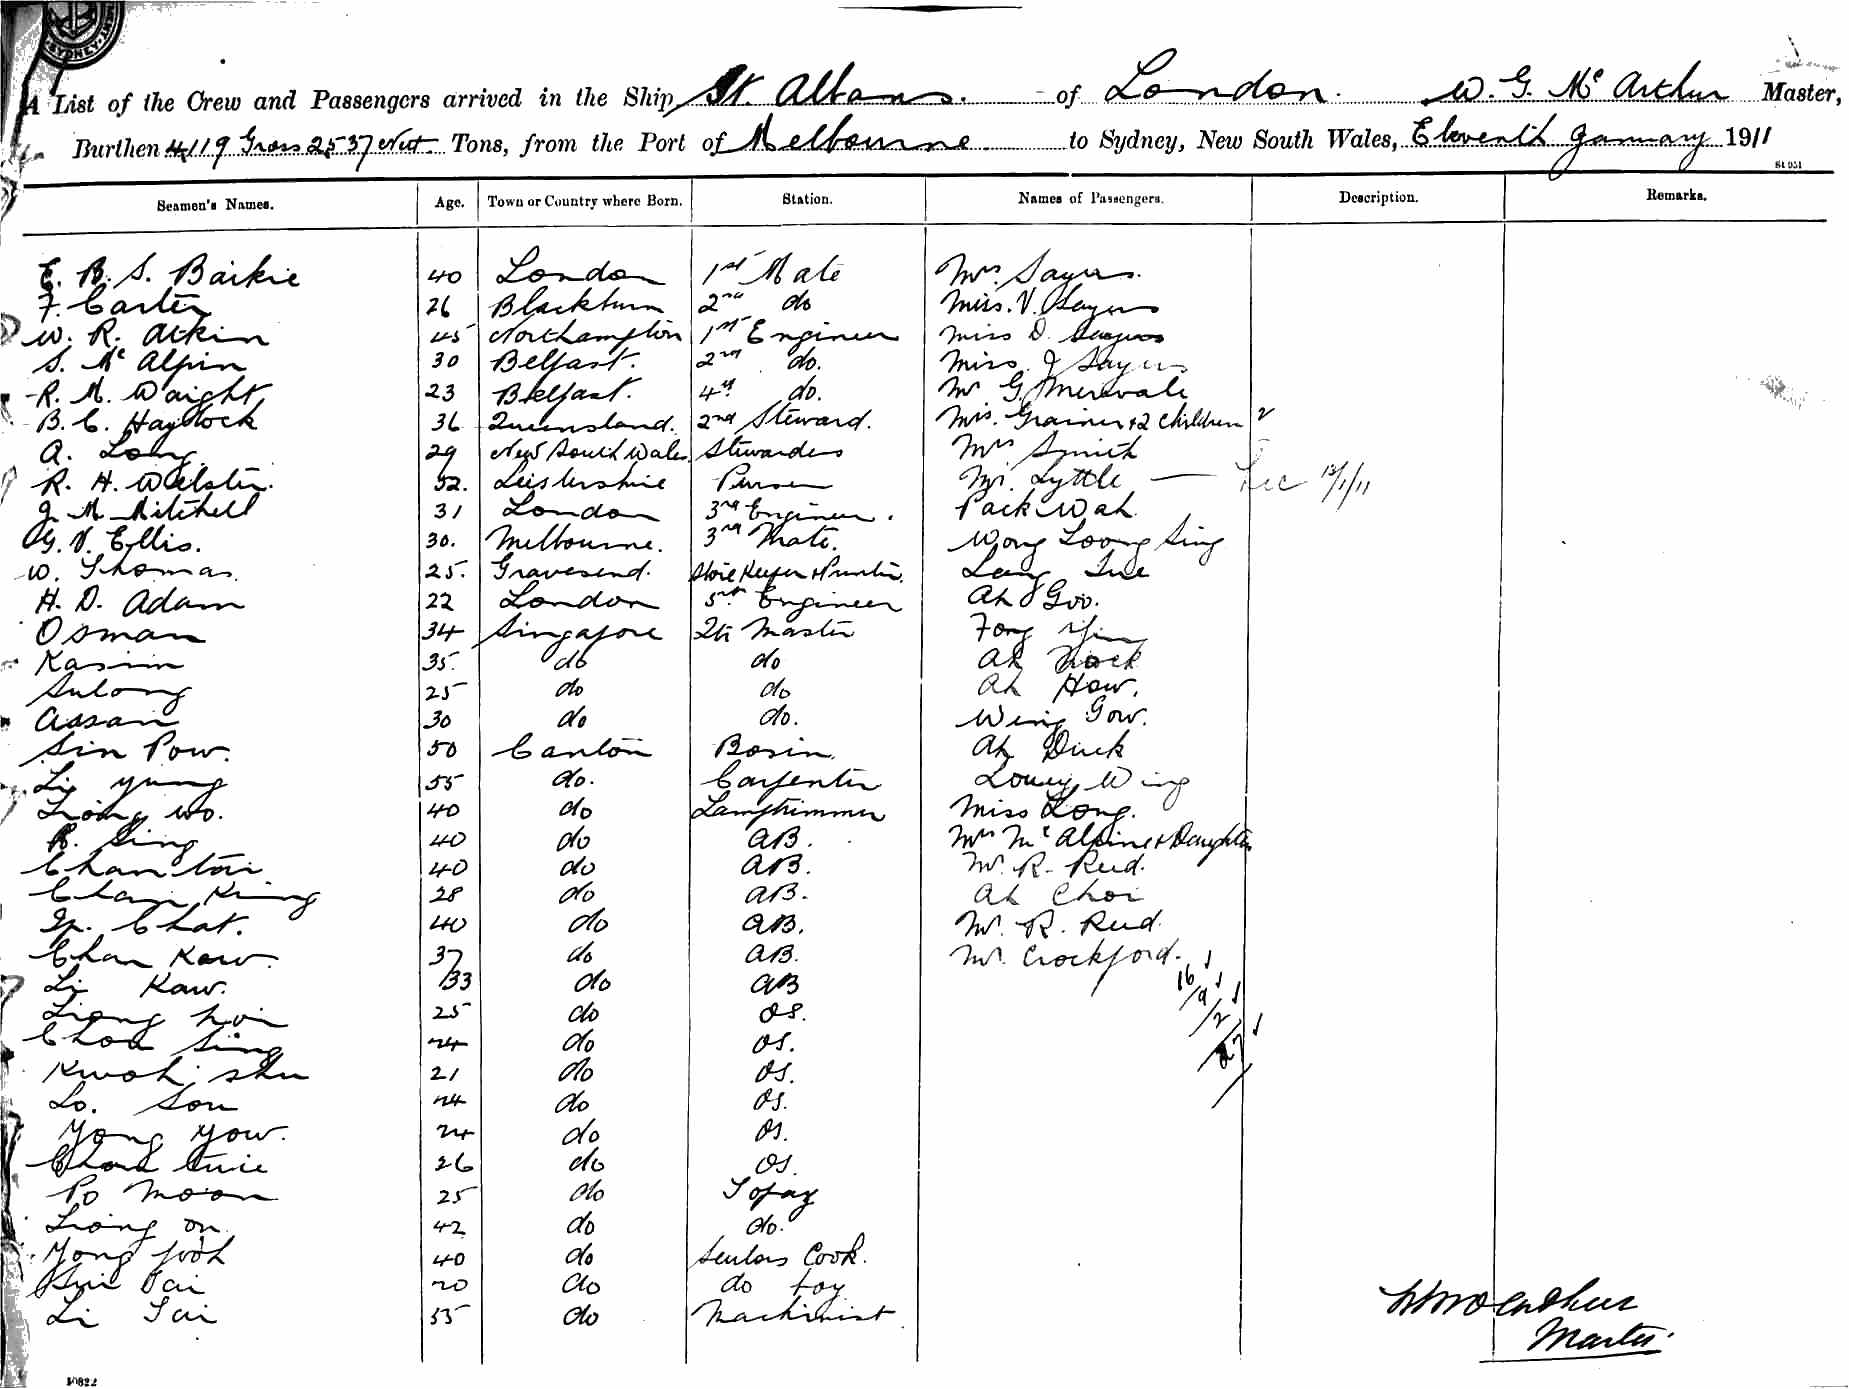 SYDNEY
A List of the Crew and Passengers arrived in the Ship St. Albans. of London. W. G. Mc Arthur Master,
Burthen 4119 Gross 2537 Nett Tons, from the Port of Melbourne to Sydney, New South Wales, Eleventh January 1911
St 051
Seamen's Names. Age. Town or Country where Born. Station. Names of Passengers. Description. Remarks.
E. B. S. Baikie 40 London 1st Mate Mrs Sayers.
F. Carter 26 Blackburn 2nd do Miss. V. Sayers
W. R. Atkin 45 Northampton 1st Engineer Miss D. Sayers
S. Mc Alpin 30 Belfast. 2nd do. Miss J Sayers
R. M. Waight 23 Belfast. 4th do. Mr G. Merevale
B. C. Haylock 36 Queensland. 2nd Steward. Mrs. Grainer & 2 Children 2
A. Long 29 New South Wales Stewardess Mrs Smith
R. H. Webster. 52. Leistershire Purser Mr. Lyttle — 12/1/11
J. M Mitchell 31 London 3rd Engineer. Pack Wah
G. V. Ellis. 30. Melbourne. 3rd Mate. Wong Loong Sing
W. Thomas 25. Gravesend. Store Keeper & Printer. Lang Tue
H. D. Adam 22 London 5th Engineer Ah Goo.
Osman 34 Singapore Qtr Master Fong Yin
Kasim 35. do do Ah
Sulong 25 do do Ah How.
Assan 30 do do. Wing Gow.
Sin Pow. 50 Canton Bosin Ah Duck
Li Yung 55 do. Carpenter Louey Wing
Liong Wo. 40 do Lamptrimmer Miss Long.
R. Sing 40 do AB. Mrs Mc Alpine & Daughter
Chan Toi 40 do AB. Mr. R. Reid.
Chan King 28 do AB. Ah Choi
Ip. Chat. 40 do AB. Mr. R. Reid.
Chan Kaw. 37 do AB. Mr. Crockford.
Li Kaw. 33 do AB 16/9/2/27
Liong hoi 25 do OS.
Chou Sing 24 do OS.
Kwok Shu 21 do OS.
Lo. Sou 24 do OS.
Yong Yow. 24 do OS.
26 do OS.
Po Moon 25 do Topaz
Liong on 42 do do.
Yong fook 40 do Sailors Cook.
Tai 20 do do boy
Li Tai 55 do Machinist
W McArthur
Master